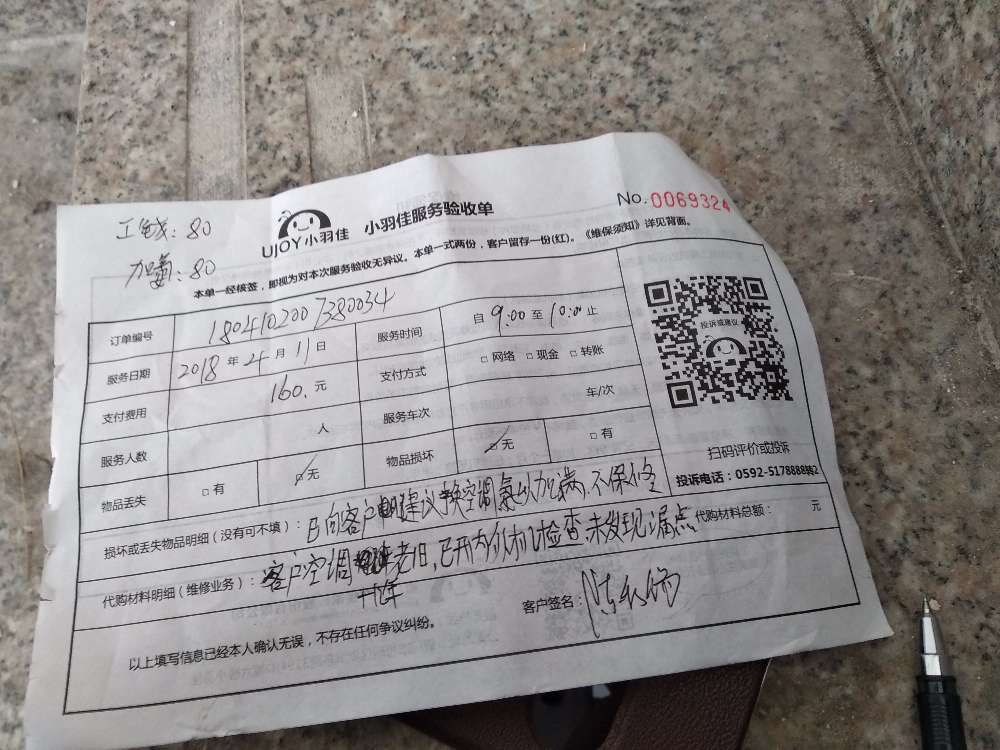 工钱：80
加氟：80
UJOY小羽佳 小羽佳服务验收单
No. 0069324
本单一经核签，即视为对本次服务验收无异议。本单一式两份，客户留存一份(红)。《维保须知》详见背面。
订单编号 1804102007380034
服务时间 自 9:00 至 10:00 止
服务日期 2018 年 4 月 11 日
支付方式 □ 网络 □ 现金 □ 转账
支付费用 160. 元
服务车次 车/次
服务人数 人
物品损坏 □ 无 □ 有
物品丢失 □ 有 □ 无
投诉或建议
扫码评价或投诉
投诉电话：0592-5178888转2
损坏或丢失物品明细（没有可不填）：已向客户建议换空调氟以加满，不保修
代购材料明细（维修业务）：客户空调老旧，已开内外机检查，未发现漏点
代购材料总额： 元
客户签名：
以上填写信息已经本人确认无误，不存在任何争议纠纷。